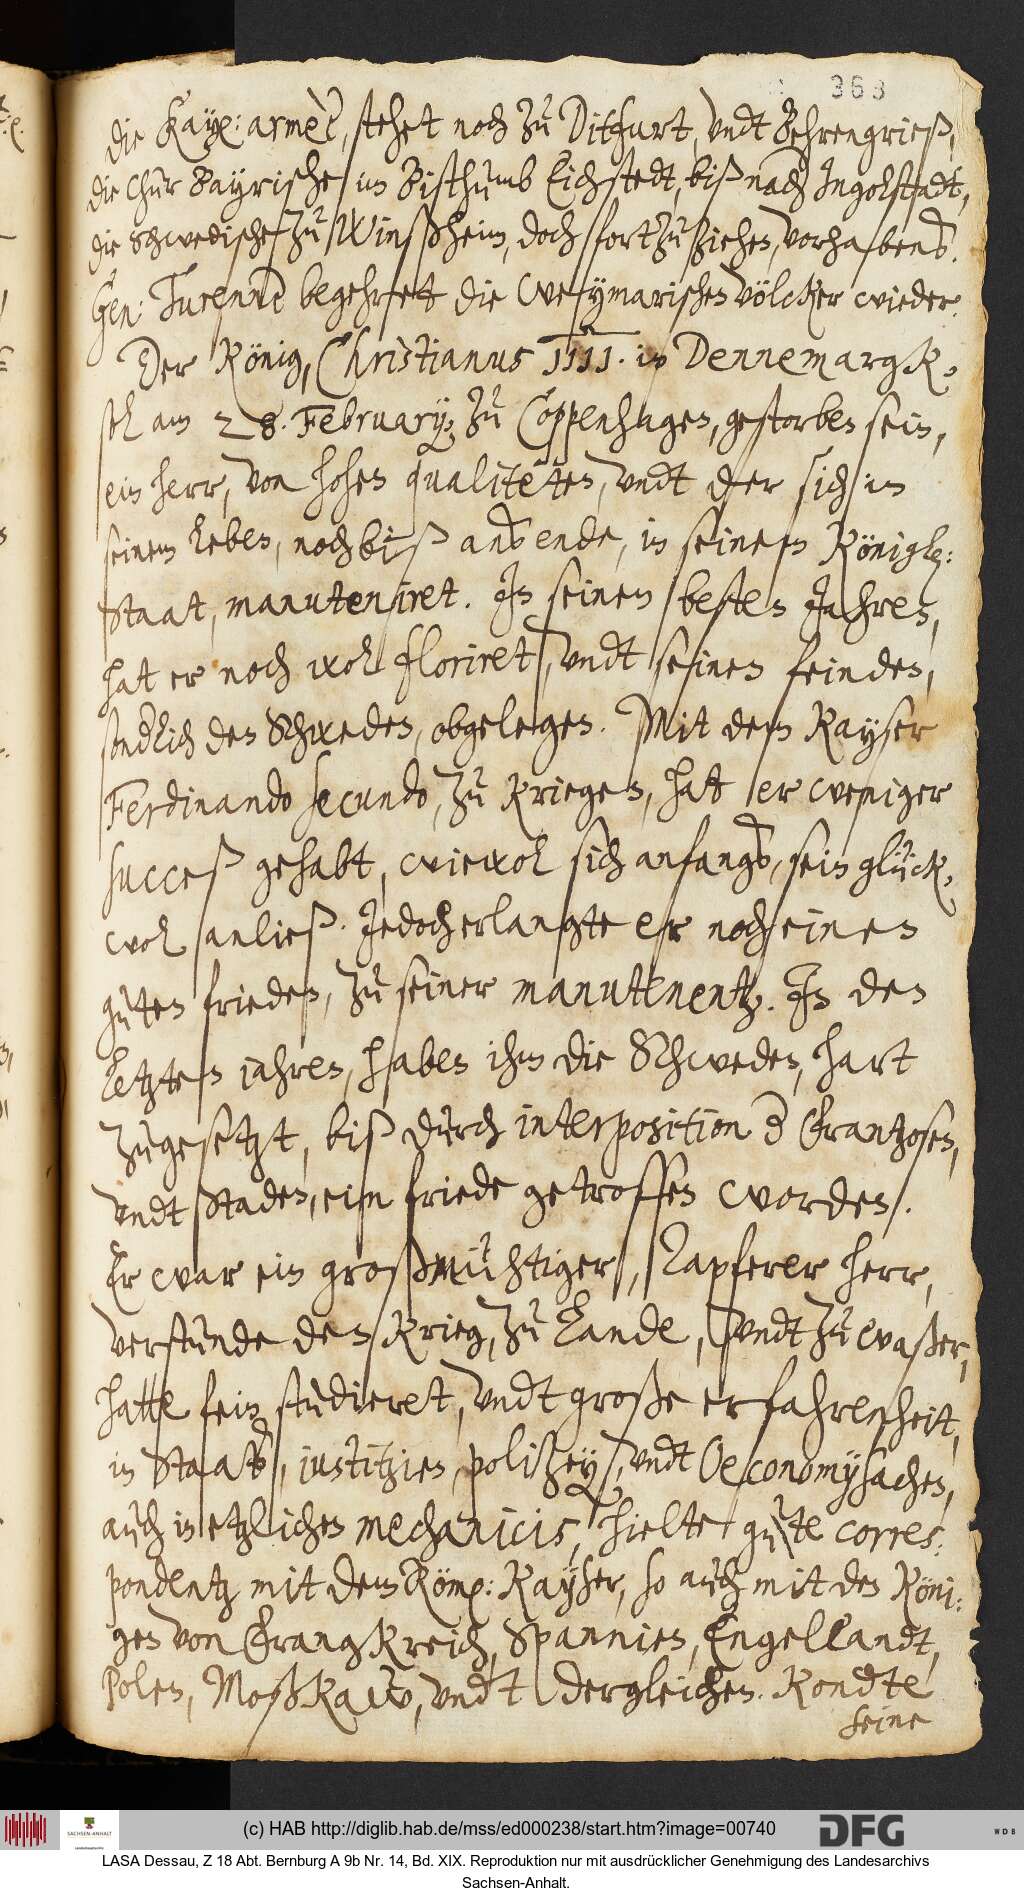 363
Die Kay: armèe, stehet noch zu Ditfurt, undt Behrengrieß,
die Chur Bayrische im Bisthumb Eichstedt, biß nach Ingolstadt,
die Schwedische zu Winßheim, doch fortzuziehen, vorhabens.
Gen: Turenne begehrett die Weymarischen völcker wieder.
Der König, Christianus IIII. in Dennemargk,
sol am 28. February, zu Coppenhagen, gestorben sein,
ein herr, von hohen qualiteten, undt der sich in
seinem leben, noch biß ans ende, in seinem Königl:
Staat, manuteniret. In seinen besten Jahren,
hat er noch wol floriret, undt seinen feinden,
sonderlich den Schweden, obgelegen. Mit dem Kayser
Ferdinando Secundo, zu kriegen, hat er weniger
succeß gehabt, wiewol sich anfangs, sein glück,
wol anließ. Jedoch erlangte er noch einen
guten frieden, zu seiner manutenentz. In den
letzten jahren, haben ihm die Schweden, hart
zugesetzt, biß durch interposition der Frantzosen,
undt Staden, ein friede getroffen worden.
Er war ein großmühtiger, Tapferer herr,
verstunde den krieg, zu Lande, undt zu waßer,
hatte fein studieret, undt große erfahrenheit,
in Staats, justitzien polizey, undt Oeconomysachen,
auch in etzlichen mechanicis, hielte gute corres:
pondentz mit dem Röm: Kayser, so auch mit den Köni:
gen von Frangkreich, Spannien, Engellandt,
Polen, Moßkaw, undt dergleichen. Kondte
seine
SACHSEN-ANHALT
(c) HAB http://diglib.hab.de/mss/ed000238/start.htm?image=00740
DFG
WDB
LASA Dessau, Z 18 Abt. Bernburg A 9b Nr. 14, Bd. XIX. Reproduktion nur mit ausdrücklicher Genehmigung des Landesarchivs
Sachsen-Anhalt.